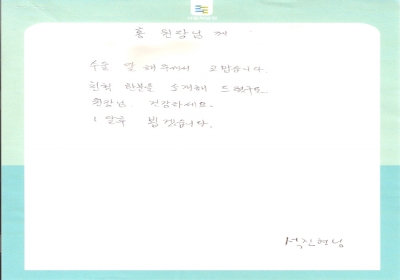 홍 원장님 께
수술 잘 해주셔서 고맙습니다.
친척 한분을 소개해 드렸구요
원장님. 건강하세요.
1 달후 뵙겠습니다.
석진현님